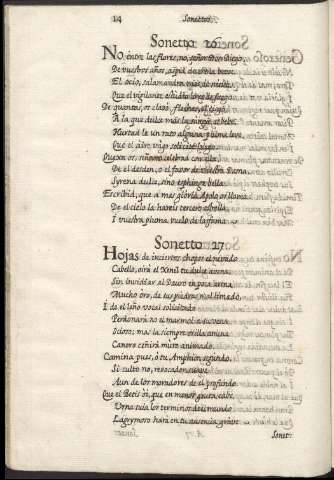 14 Sonettos.
Sonetto 26
No entre las flores, no, señor Don Diego,
De vuestros años, aspid duerma breve
El ocio, salamandra mas de nieve,
Que el vigilante estudio lo es de fuego
De quantas, os clavó, flechas, el ciego
À la que dulce mas la sangre os bebe
Hurtad le un rato alguna pluma leve,
Que el aire vago solicite luego.
Quejas or, sino no celebrad con
De el desden, o el favor de vuestra Dama,
Syrena dulce, sino esphinge bella.
Escribid, que a mas gloria Apolo os llama:
De el cielo la hareis tercero estrella,
I vuestra pluma vuelo de la fama.
Sonetto 27
Hojas de inciertos chopos el nevado
Cabello, oirá el Xenil tu dulce avena,
Sin invidiar al Dauro en poca arena
Mucho oro, de sus piedras mal limado.
I de el leño vocal solicitado
Perdonará no el marmol a su vena
Sonoro; mas la siempre orilla amena
Canoro ceñirá muro animado.
Camina pues, ò tu, Amphion segundo,
Si culto no, revocador suave
Aun de los moradores de el profundo.
Que el Betis oi, que en menor gruta cabe,
Urna suia los terminos de el mundo
Lagrymoso hará en tu ausencia grave.
Sonet-